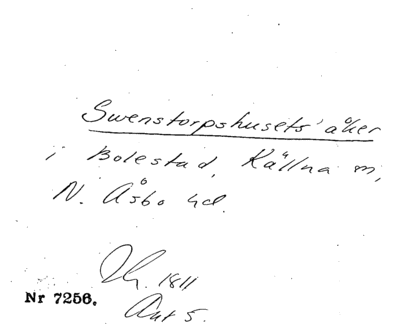 Swenstorpshusets' åker
i Bolestad, Källna m,
N. Åsbo hd.
Th. 1811
Nr 7256. Akt 5.